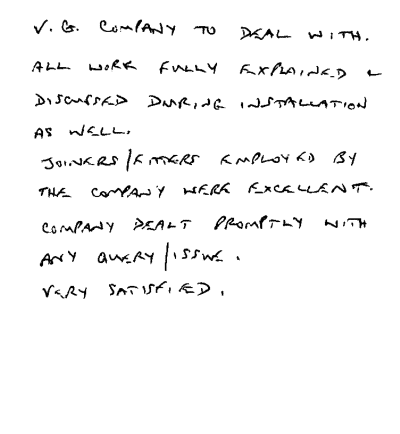 V. G. COMPANY TO DEAL WITH.
ALL WORK FULLY EXPLAINED &
DISCUSSED DURING INSTALLATION
AS WELL.
JOINERS/FITTERS EMPLOYED BY
THE COMPANY WERE EXCELLENT.
COMPANY DEALT PROMPTLY WITH
ANY QUERY/ISSUE.
VERY SATISFIED.